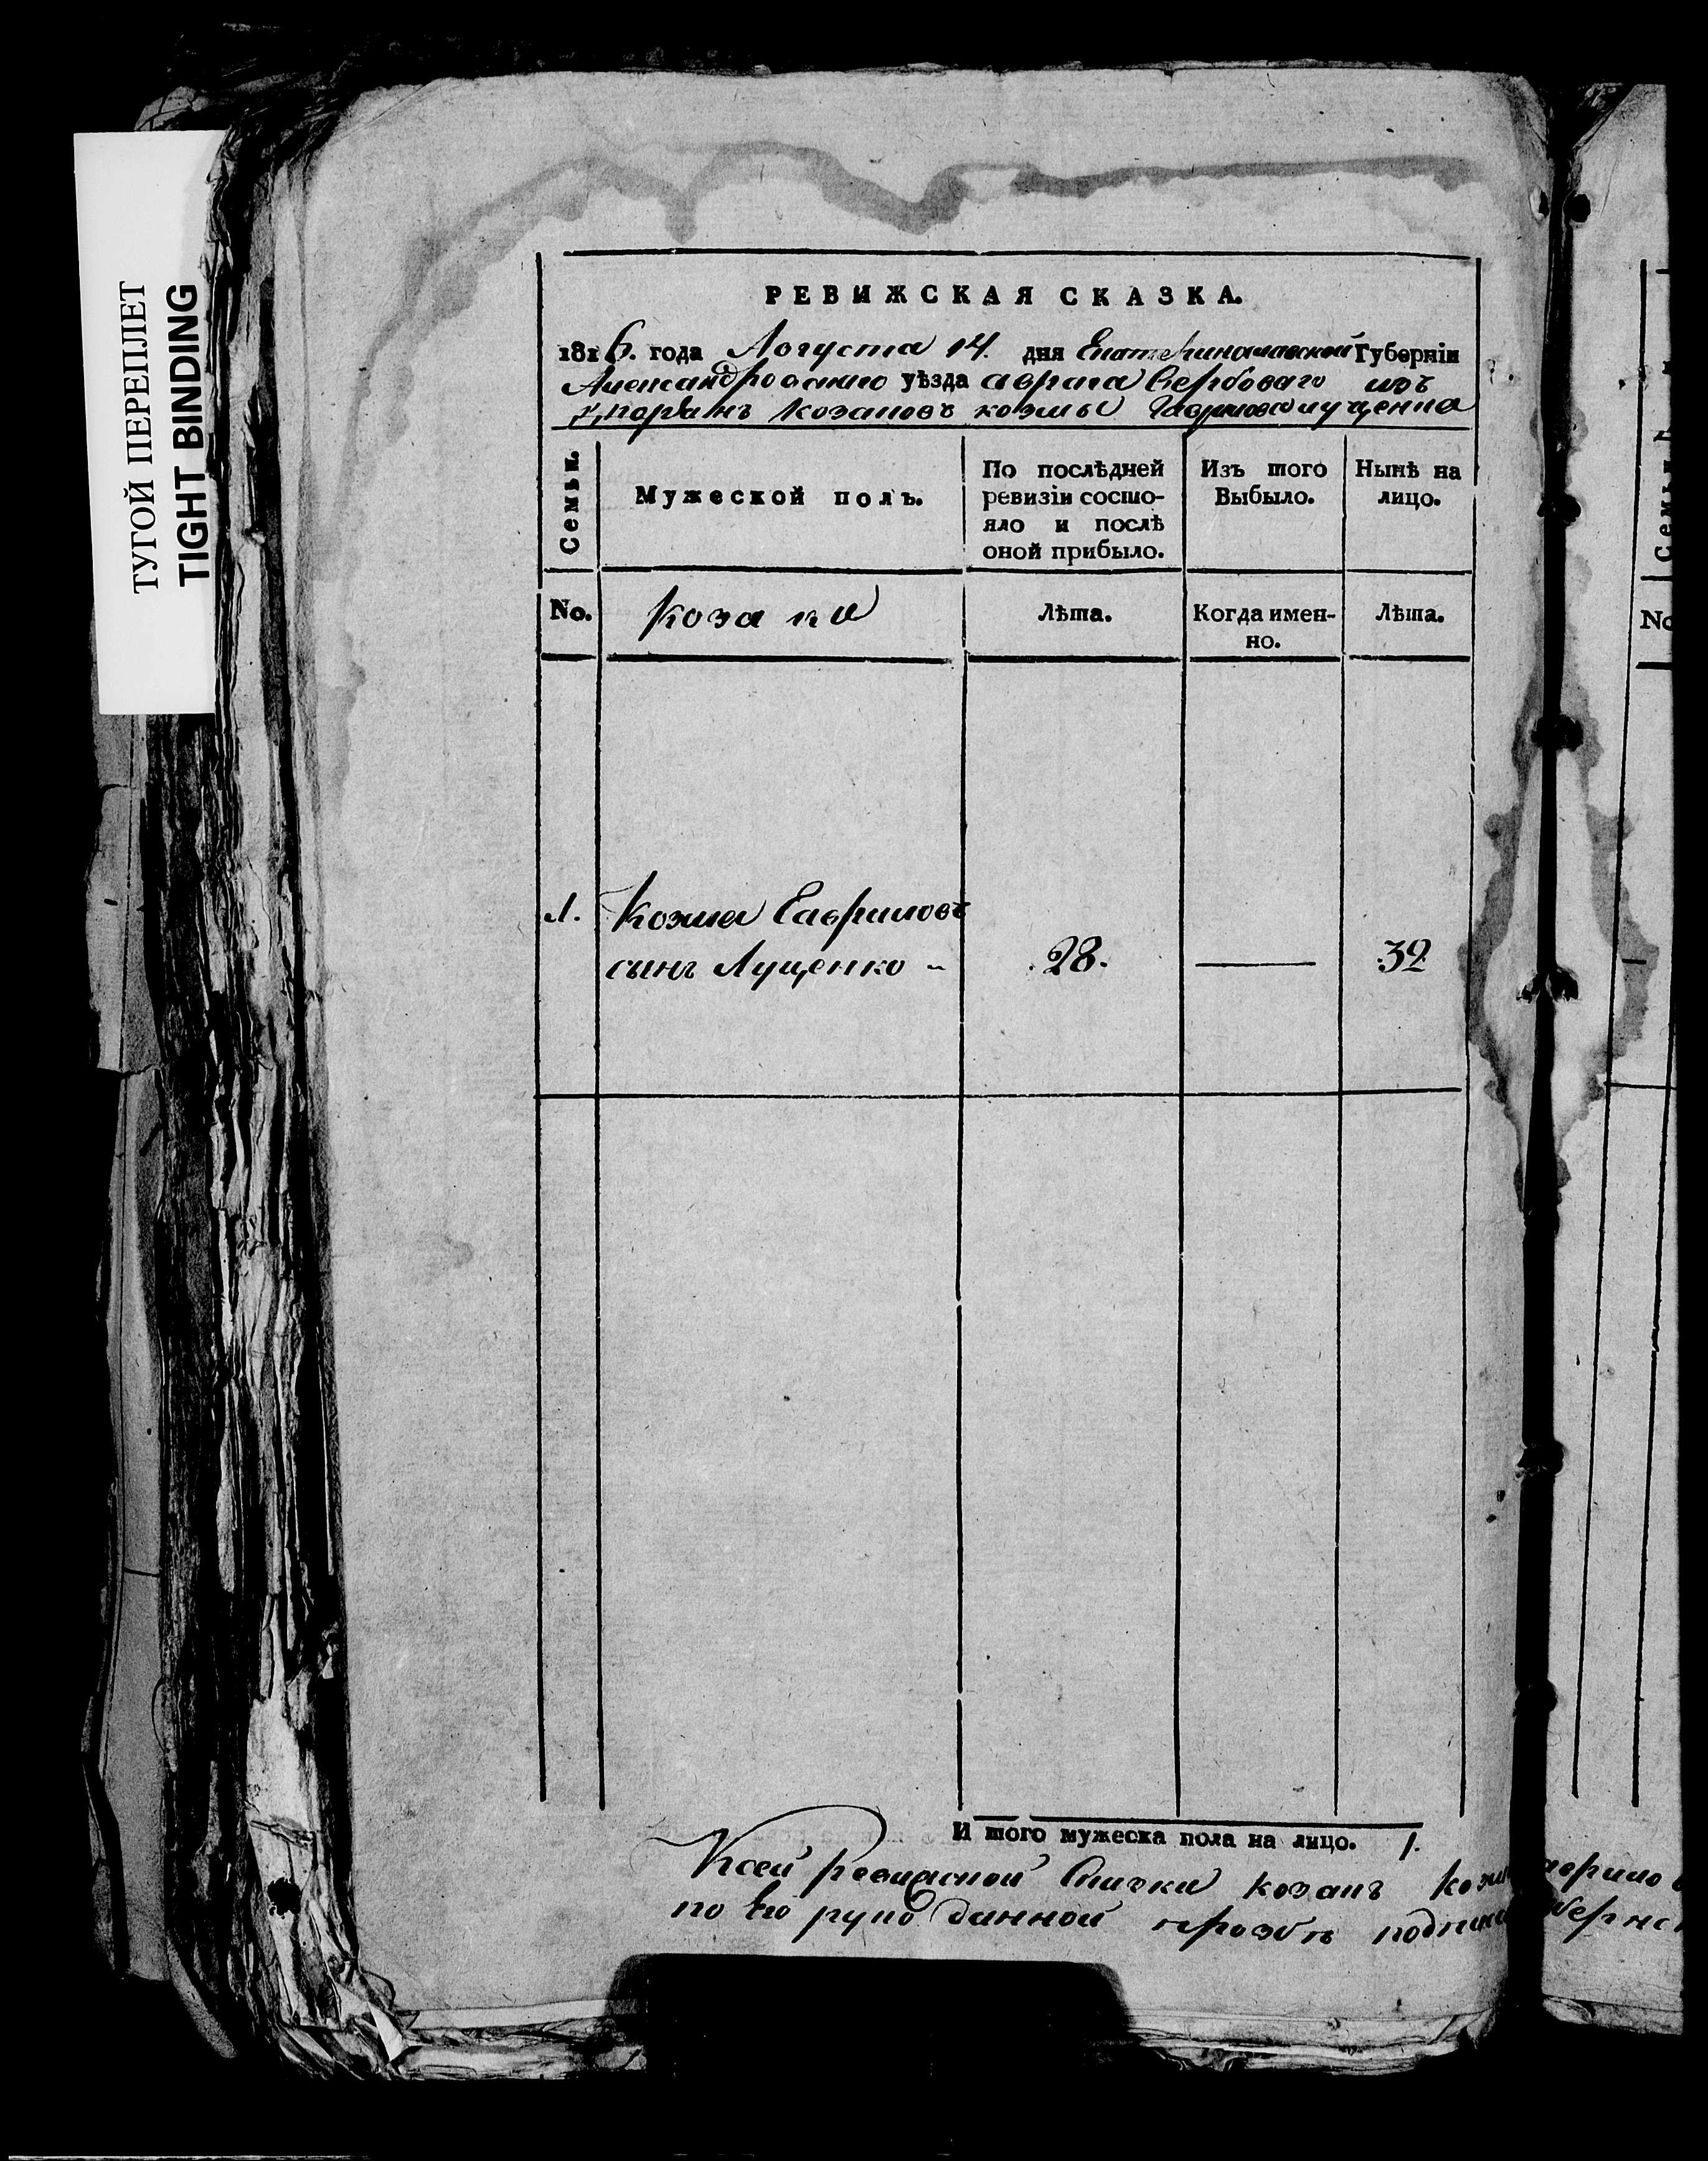 ТУГОЙ ПЕРЕПЛЕТ
TIGHT BINDING
РЕВИЖСКАЯ СКАЗКА.
1816. года Августа 14. дня Екатеринославской Губерніи
Александровскаго уѣзда оврага Вербоваго изъ
козаковъ козмы Гаврилова лущенка
Семьи.
Мужеской полъ.
По послѣдней
ревизіи состо-
яло и послѣ
оной прибыло.
Изъ того
Выбыло.
Нынѣ на
лицо.
No. козака Лѣта. Когда имен-
но. Лѣта.
1. Козма Гавриловъ
сынъ Лущенко 28. — 32
И того мужеска пола на лицо. 1.
Ксей ревизской Сказки козакъ
по его данной прозбѣ
Семьи
No